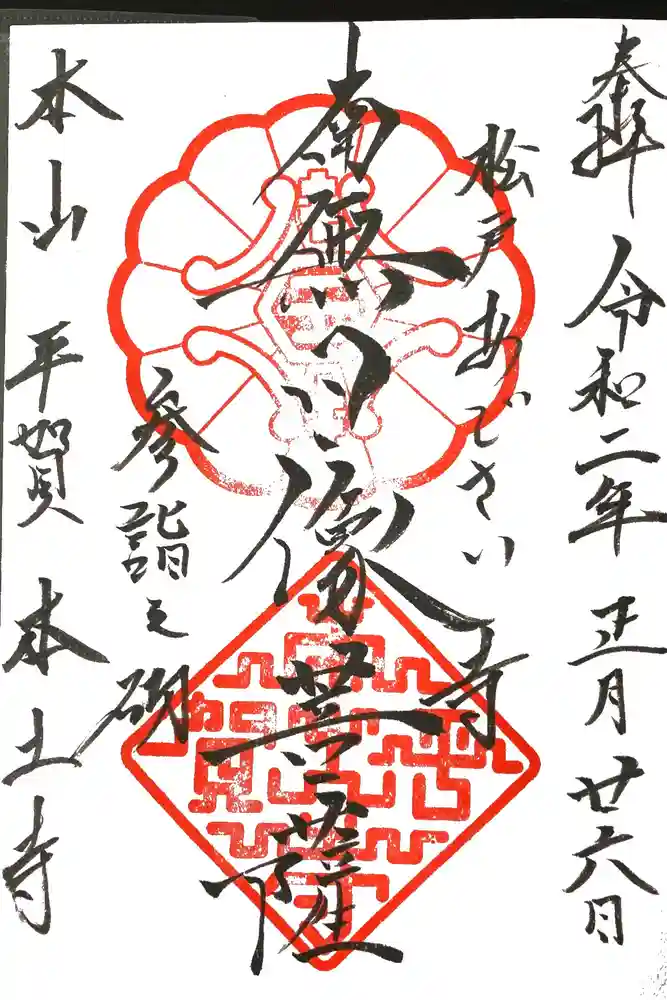 奉拜 令和二年 正月 廿六日
松戸 あぢさい 寺
南無日像菩薩
參詣之砌
本山 平賀 本土寺